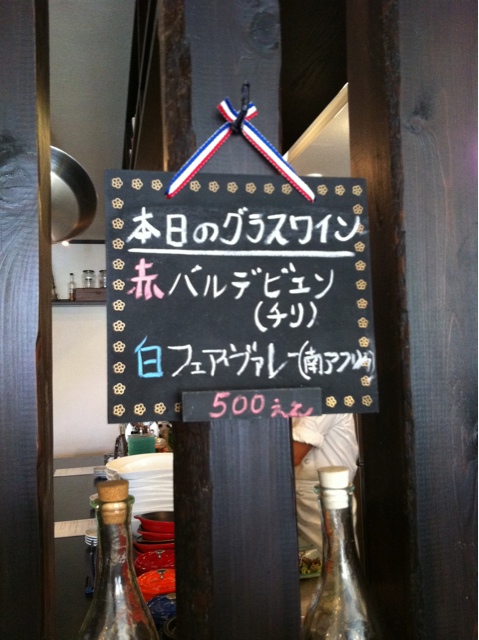 本日のグラスワイン
赤 バルデビエン
(チリ)
白 フェアヴァレー(南アフリカ)
500えん